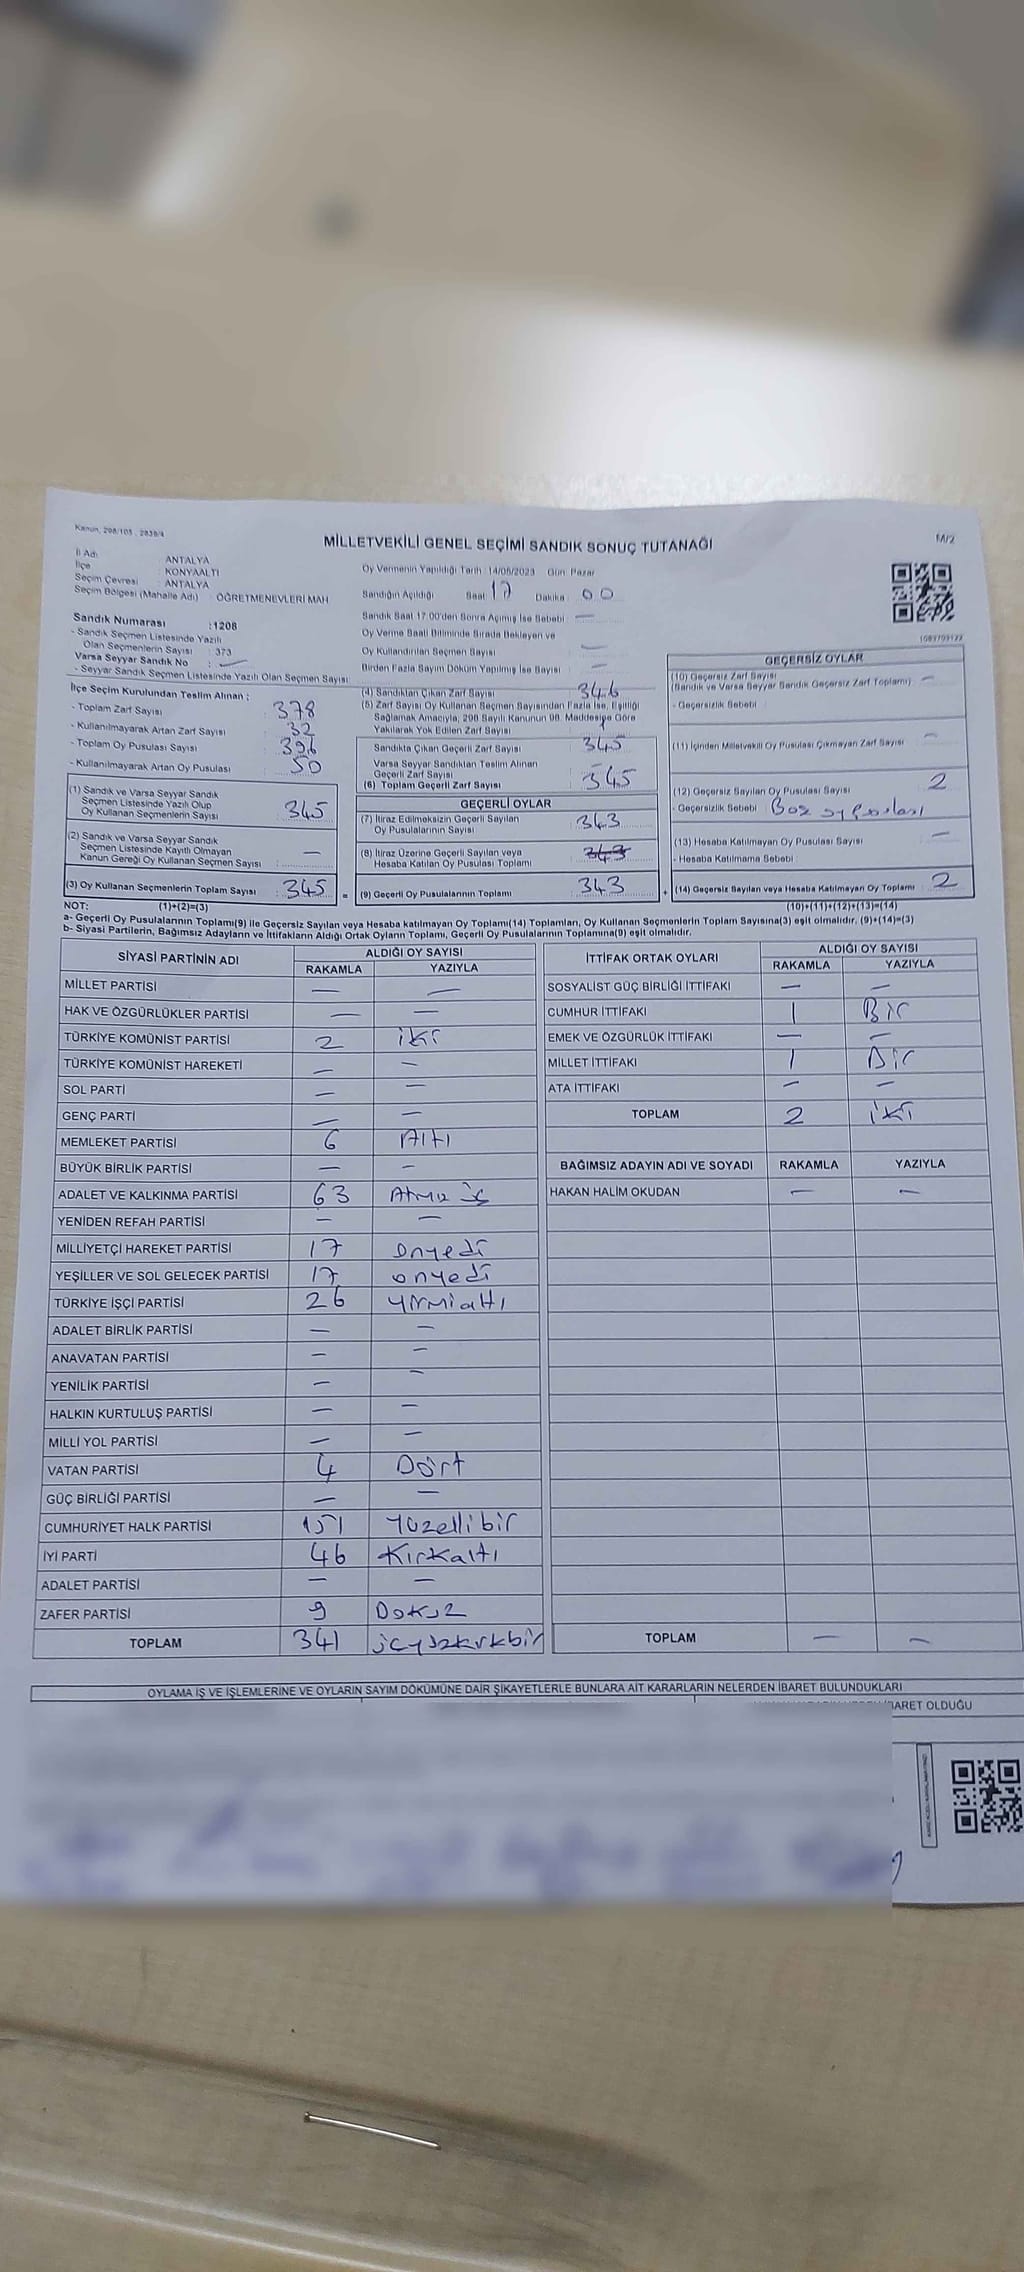 Kanun, 298/105 , 2839/4
MİLLETVEKİLİ GENEL SEÇİMİ SANDIK SONUÇ TUTANAĞI
M/2
İl Adı : ANTALYA
İlçe : KONYAALTI
Seçim Çevresi : ANTALYA
Seçim Bölgesi (Mahalle Adı) : ÖĞRETMENEVLERİ MAH
Sandık Numarası :1208
- Sandık Seçmen Listesinde Yazılı
Olan Seçmenlerin Sayısı : 373
Varsa Seyyar Sandık No : —
- Seyyar Sandık Seçmen Listesinde Yazılı Olan Seçmen Sayısı
Oy Vermenin Yapıldığı Tarih : 14/05/2023 Gün: Pazar
Sandığın Açıldığı Saat 17 Dakika : 00
Sandık Saat 17.00'den Sonra Açılmış İse Sebebi : —
Oy Verme Saati Bitiminde Sırada Bekleyen ve
Oy Kullandırılan Seçmen Sayısı : —
Birden Fazla Sayım Döküm Yapılmış İse Sayısı : —
İlçe Seçim Kurulundan Teslim Alınan ;
- Toplam Zarf Sayısı : 378
- Kullanılmayarak Artan Zarf Sayısı : 32
- Toplam Oy Pusulası Sayısı : 396
- Kullanılmayarak Artan Oy Pusulası : 50
(1) Sandık ve Varsa Seyyar Sandık
Seçmen Listesinde Yazılı Olup
Oy Kullanan Seçmenlerin Sayısı : 345
(2) Sandık ve Varsa Seyyar Sandık
Seçmen Listesinde Kayıtlı Olmayan
Kanun Gereği Oy Kullanan Seçmen Sayısı : —
(3) Oy Kullanan Seçmenlerin Toplam Sayısı : 345 =
(4) Sandıktan Çıkan Zarf Sayısı : 346
(5) Zarf Sayısı Oy Kullanan Seçmen Sayısından Fazla İse, Eşitliği
Sağlamak Amacıyla, 298 Sayılı Kanunun 98. Maddesine Göre
Yakılarak Yok Edilen Zarf Sayısı : 1
Sandıkta Çıkan Geçerli Zarf Sayısı : 345
Varsa Seyyar Sandıktan Teslim Alınan
Geçerli Zarf Sayısı : —
(6) Toplam Geçerli Zarf Sayısı : 345
GEÇERLİ OYLAR
(7) İtiraz Edilmeksizin Geçerli Sayılan
Oy Pusulalarının Sayısı : 343
(8) İtiraz Üzerine Geçerli Sayılan veya
Hesaba Katılan Oy Pusulası Toplamı : 343
(9) Geçerli Oy Pusulalarının Toplamı : 343 +
1089709122
GEÇERSİZ OYLAR
(10) Geçersiz Zarf Sayısı
(Sandık ve Varsa Seyyar Sandık Geçersiz Zarf Toplamı) : —
- Geçersizlik Sebebi :
(11) İçinden Milletvekili Oy Pusulası Çıkmayan Zarf Sayısı : —
(12) Geçersiz Sayılan Oy Pusulası Sayısı : 2
- Geçersizlik Sebebi : Boş oy pusulası
(13) Hesaba Katılmayan Oy Pusulası Sayısı : —
- Hesaba Katılmama Sebebi :
(14) Geçersiz Sayılan veya Hesaba Katılmayan Oy Toplamı : 2
NOT: (1)+(2)=(3) (10)+(11)+(12)+(13)=(14)
a- Geçerli Oy Pusulalarının Toplamı(9) ile Geçersiz Sayılan veya Hesaba katılmayan Oy Toplamı(14) Toplamları, Oy Kullanan Seçmenlerin Toplam Sayısına(3) eşit olmalıdır. (9)+(14)=(3)
b- Siyasi Partilerin, Bağımsız Adayların ve İttifakların Aldığı Ortak Oyların Toplamı, Geçerli Oy Pusulalarının Toplamına(9) eşit olmalıdır.
SİYASİ PARTİNİN ADI ALDIĞI OY SAYISI
RAKAMLA YAZIYLA
MİLLET PARTİSİ — —
HAK VE ÖZGÜRLÜKLER PARTİSİ — —
TÜRKİYE KOMÜNİST PARTİSİ 2 iki
TÜRKİYE KOMÜNİST HAREKETİ — —
SOL PARTİ — —
GENÇ PARTİ — —
MEMLEKET PARTİSİ 6 Altı
BÜYÜK BİRLİK PARTİSİ — —
ADALET VE KALKINMA PARTİSİ 63 Atmış üç
YENİDEN REFAH PARTİSİ — —
MİLLİYETÇİ HAREKET PARTİSİ 17 onyedi
YEŞİLLER VE SOL GELECEK PARTİSİ 17 onyedi
TÜRKİYE İŞÇİ PARTİSİ 26 yirmialtı
ADALET BİRLİK PARTİSİ — —
ANAVATAN PARTİSİ — —
YENİLİK PARTİSİ — —
HALKIN KURTULUŞ PARTİSİ — —
MİLLİ YOL PARTİSİ — —
VATAN PARTİSİ 4 Dört
GÜÇ BİRLİĞİ PARTİSİ — —
CUMHURİYET HALK PARTİSİ 151 Yüzellibir
İYİ PARTİ 46 Kırkaltı
ADALET PARTİSİ — —
ZAFER PARTİSİ 9 Dokuz
TOPLAM 341 üçyüzkırkbir
İTTİFAK ORTAK OYLARI ALDIĞI OY SAYISI
RAKAMLA YAZIYLA
SOSYALİST GÜÇ BİRLİĞİ İTTİFAKI — —
CUMHUR İTTİFAKI 1 Bir
EMEK VE ÖZGÜRLÜK İTTİFAKI — —
MİLLET İTTİFAKI 1 Bir
ATA İTTİFAKI — —
TOPLAM 2 iki
BAĞIMSIZ ADAYIN ADI VE SOYADI RAKAMLA YAZIYLA
HAKAN HALİM OKUDAN — —
TOPLAM — —
OYLAMA İŞ VE İŞLEMLERİNE VE OYLARIN SAYIM DÖKÜMÜNE DAİR ŞİKAYETLERLE BUNLARA AİT KARARLARIN NELERDEN İBARET BULUNDUKLARI
BARET OLDUĞU